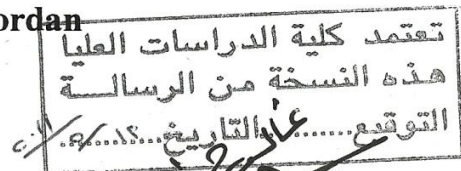 ordan
تعتمد كلية الدراسات العليا
هذه النسخة من الرسالـــة
التوقيع............التاريخ............